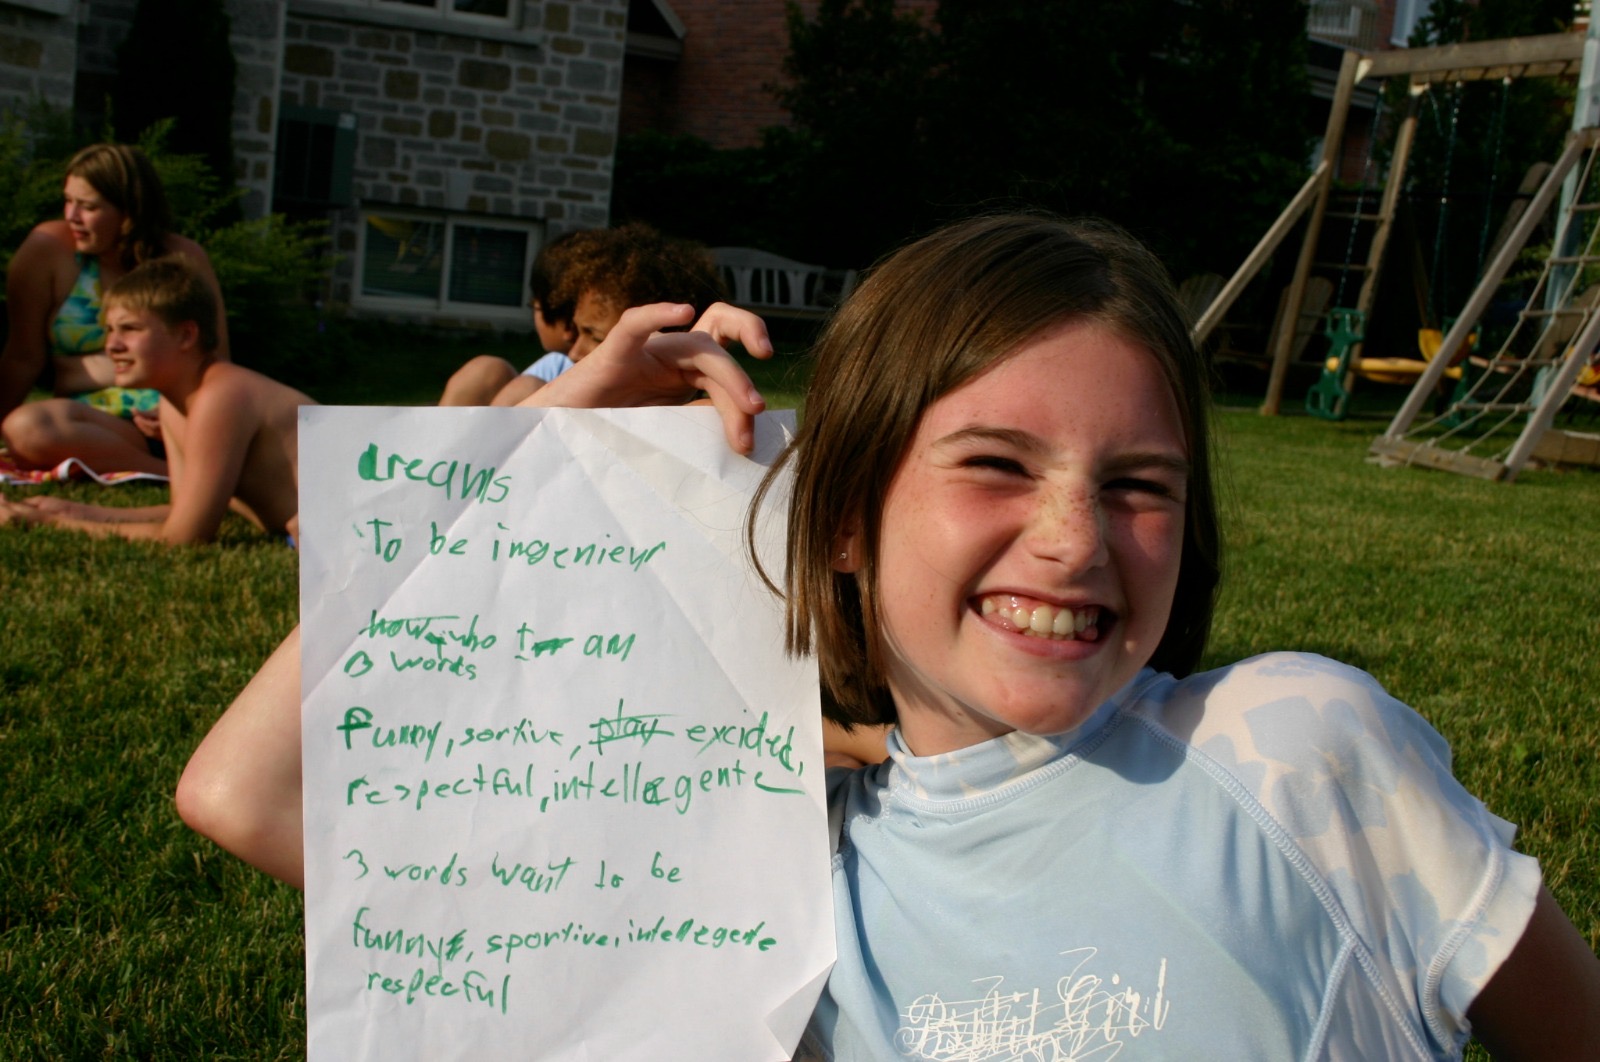 dreams
To be ingenieur
how who I am
3 words
funny, sortive, play excided,
respectful, intellegente
3 words want to be
funny, sportive, intellegente
respecful
Girl